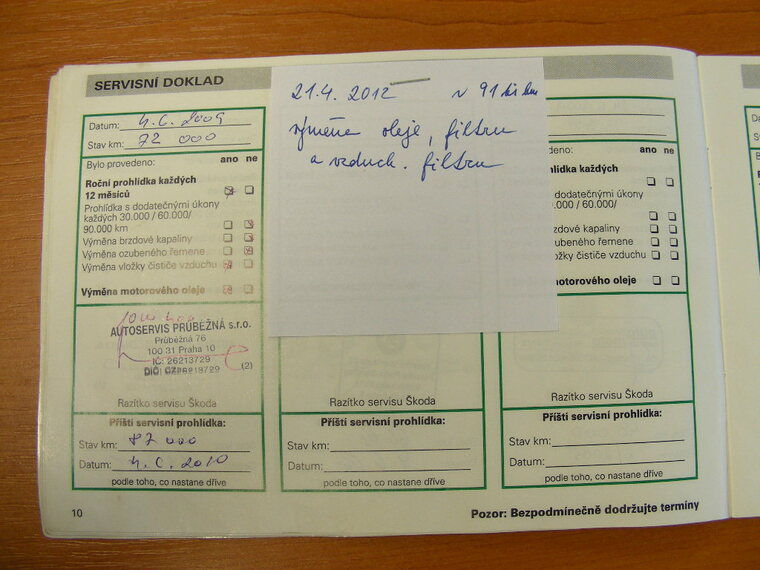 SERVISNÍ DOKLAD
Datum: 4.6. 2009
Stav km: 72 000
Bylo provedeno: ano ne
Roční prohlídka každých
12 měsíců
Prohlídka s dodatečnými úkony
každých 30.000 / 60.000/
90.000 km
Výměna brzdové kapaliny
Výměna ozubeného řemene
Výměna vložky čističe vzduchu
Výměna motorového oleje
AUTOSERVIS PRŮBĚŽNÁ s.r.o.
Průběžná 76
100 31 Praha 10
IČ: 26213729
DIČ: CZ26213729
(2)
Razítko servisu Škoda
Příští servisní prohlídka:
Stav km: 87 000
Datum: 4.6. 2010
podle toho, co nastane dříve
10
21.4. 2012 v 91 tis km
výměna oleje, filtru
a vzduch. filtru
Razítko servisu Škoda
Příští servisní prohlídka:
Stav km:
Datum:
podle toho, co nastane dříve
no provedeno: ano ne
hlídka každých
dodatečnými úkony
.000 / 60.000/
zdové kapaliny
ubeného řemene
ožky čističe vzduchu
otorového oleje
Razítko servisu Škoda
Příští servisní prohlídka:
Stav km:
Datum:
podle toho, co nastane dříve
Pozor: Bezpodmínečně dodržujte termíny